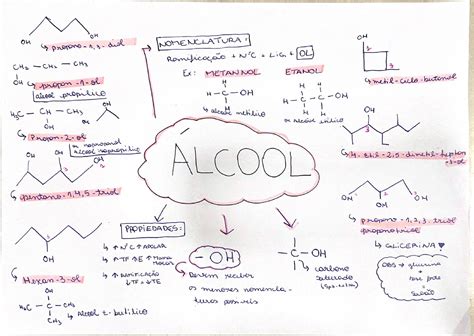 OH
OH
propano-1,3-diol
CH₃ CH₂ CH₂
OH
propan-1-ol
álcool propílico
H₃C CH CH₃
OH
OH
Propan-2-ol
álcool isopropílico
OH
OH
OH
pentano-1,4,5-triol
OH
Hexan-3-ol
CH₃
H₃C-C-OH
CH₃
Álcool t-butílico
NOMENCLATURA:
Ramificação + N°C + LIG + OL
Ex: METANOL ETANOL
H
H-C-OH
H
álcool metílico
H H
H-C-C-OH
H H
álcool etílico
ÁLCOOL
PROPIEDADES:
↑ N°C ↑ APOLAR
↑ TF ↑ TE ↑ Massa molar
↑ RAMIFICAÇÃO ↓ TF ↓ TE
-OH
Devem receber
os menores nomencla-
turas possíveis
-C-OH
carbono
saturado
OH
metil-ciclo-butanol
OH
4-etil-2,5-dimetil-heptan-
3-ol
OH
HO
OH
propano-1,2,3-triol
propanotriol
GLICERINA
OBS: glicerina
+
soda
Sabão